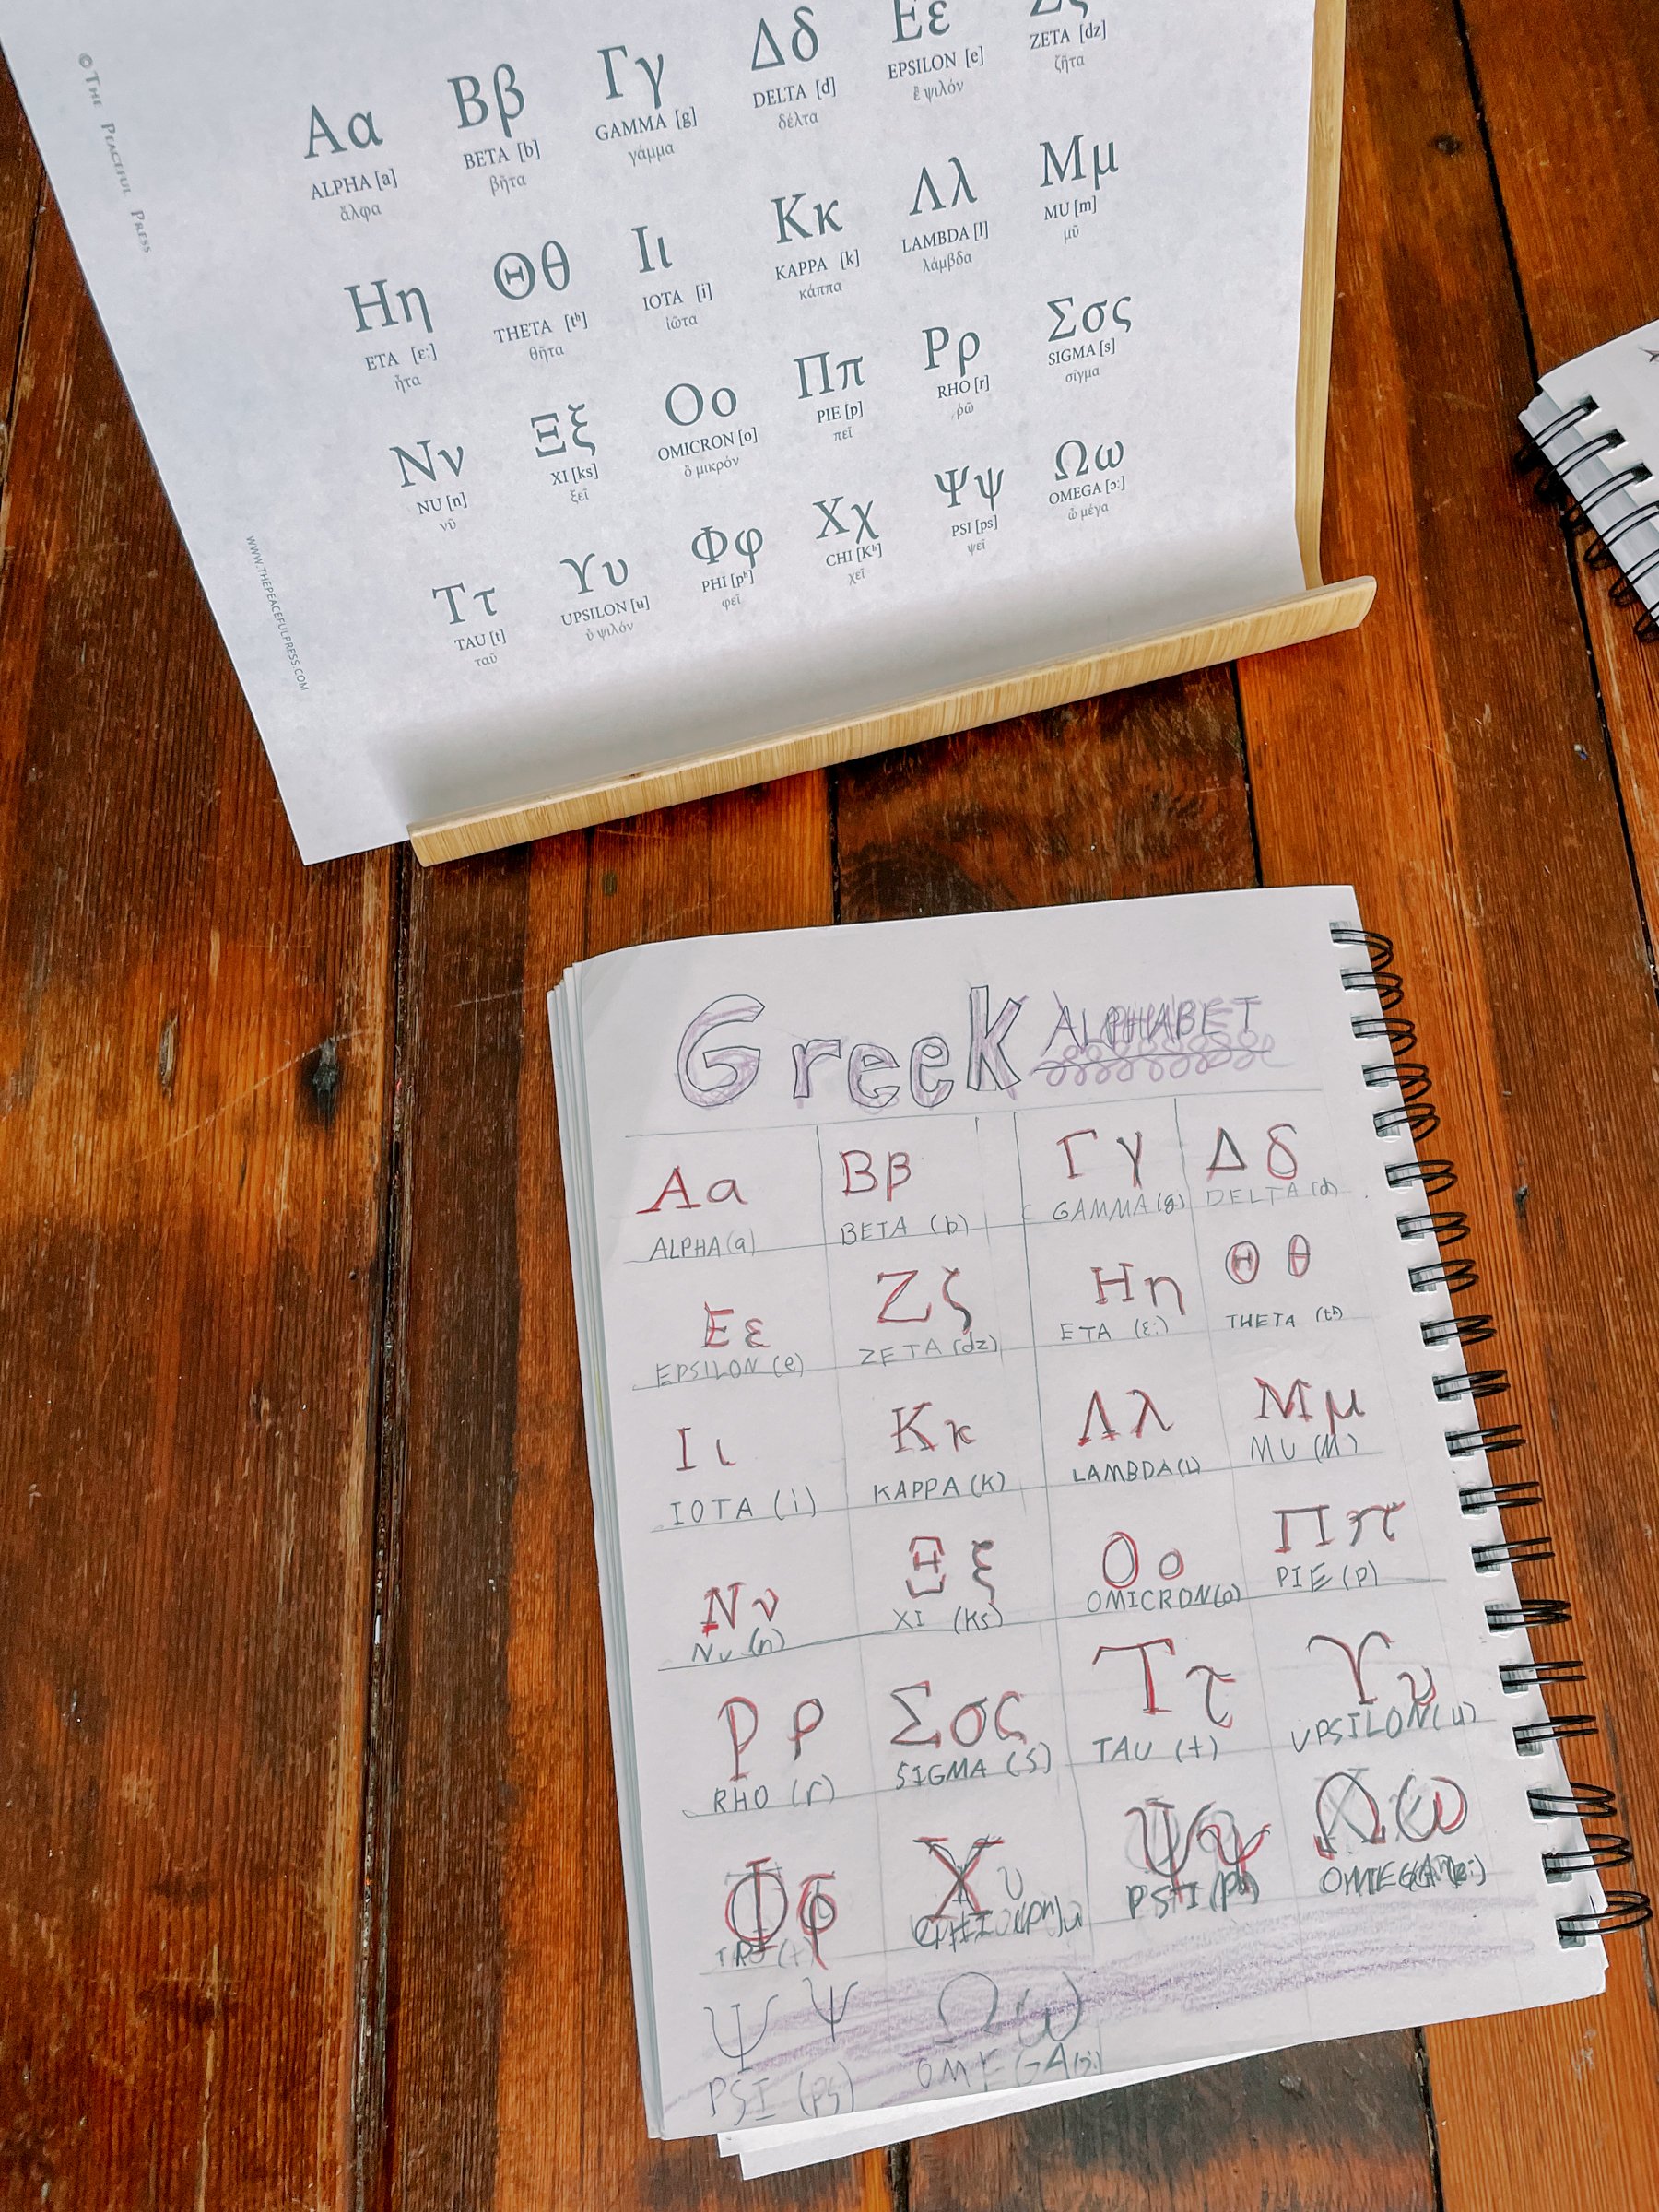 © The Peaceful Press
Αα Ββ Γγ Δδ Εε Ζζ
ALPHA [a] BETA [b] GAMMA [g] DELTA [d] EPSILON [e] ZETA [dz]
ἄλφα βῆτα γάμμα δέλτα ἒ ψιλόν ζῆτα
Ηη Θθ Ιι Κκ Λλ Μμ
ETA [ɛ:] THETA [tʰ] IOTA [i] KAPPA [k] LAMBDA [l] MU [m]
ἦτα θῆτα ἰῶτα κάππα λάμβδα μῦ
Νν Ξξ Οο Ππ Ρρ Σσς
NU [n] XI [ks] OMICRON [o] PIE [p] RHO [r] SIGMA [s]
νῦ ξεῖ ὂ μικρόν πεῖ ῥῶ σῖγμα
Ττ Υυ Φφ Χχ Ψψ Ωω
TAU [t] UPSILON [ʉ] PHI [pʰ] CHI [Kʰ] PSI [ps] OMEGA [ɔ:]
ταῦ ὖ ψιλόν φεῖ χεῖ ψεῖ ὦ μέγα
WWW.THEPEACEFULPRESS.COM
Greek ALPHABET
Αα Ββ Γγ Δδ
ALPHA (a) BETA (b) GAMMA (g) DELTA (d)
Εε Ζζ Ηη Θθ
EPSILON (e) ZETA (dz) ETA (ɛ:) THETA (tʰ)
Ιι Κκ Λλ Μμ
IOTA (i) KAPPA (K) LAMBDA (L) MU (M)
Νν Ξξ Οο Ππ
NU (n) XI (Ks) OMICRON (o) PIE (P)
Ρρ Σσς Ττ Υυ
RHO (r) SIGMA (S) TAU (t) UPSILON (u)
Φφ Χ Ψψ Ωω
PSI (ps) OMEGA
Ψψ Ωω
PSI (ps) OMEGA (ɔ:)